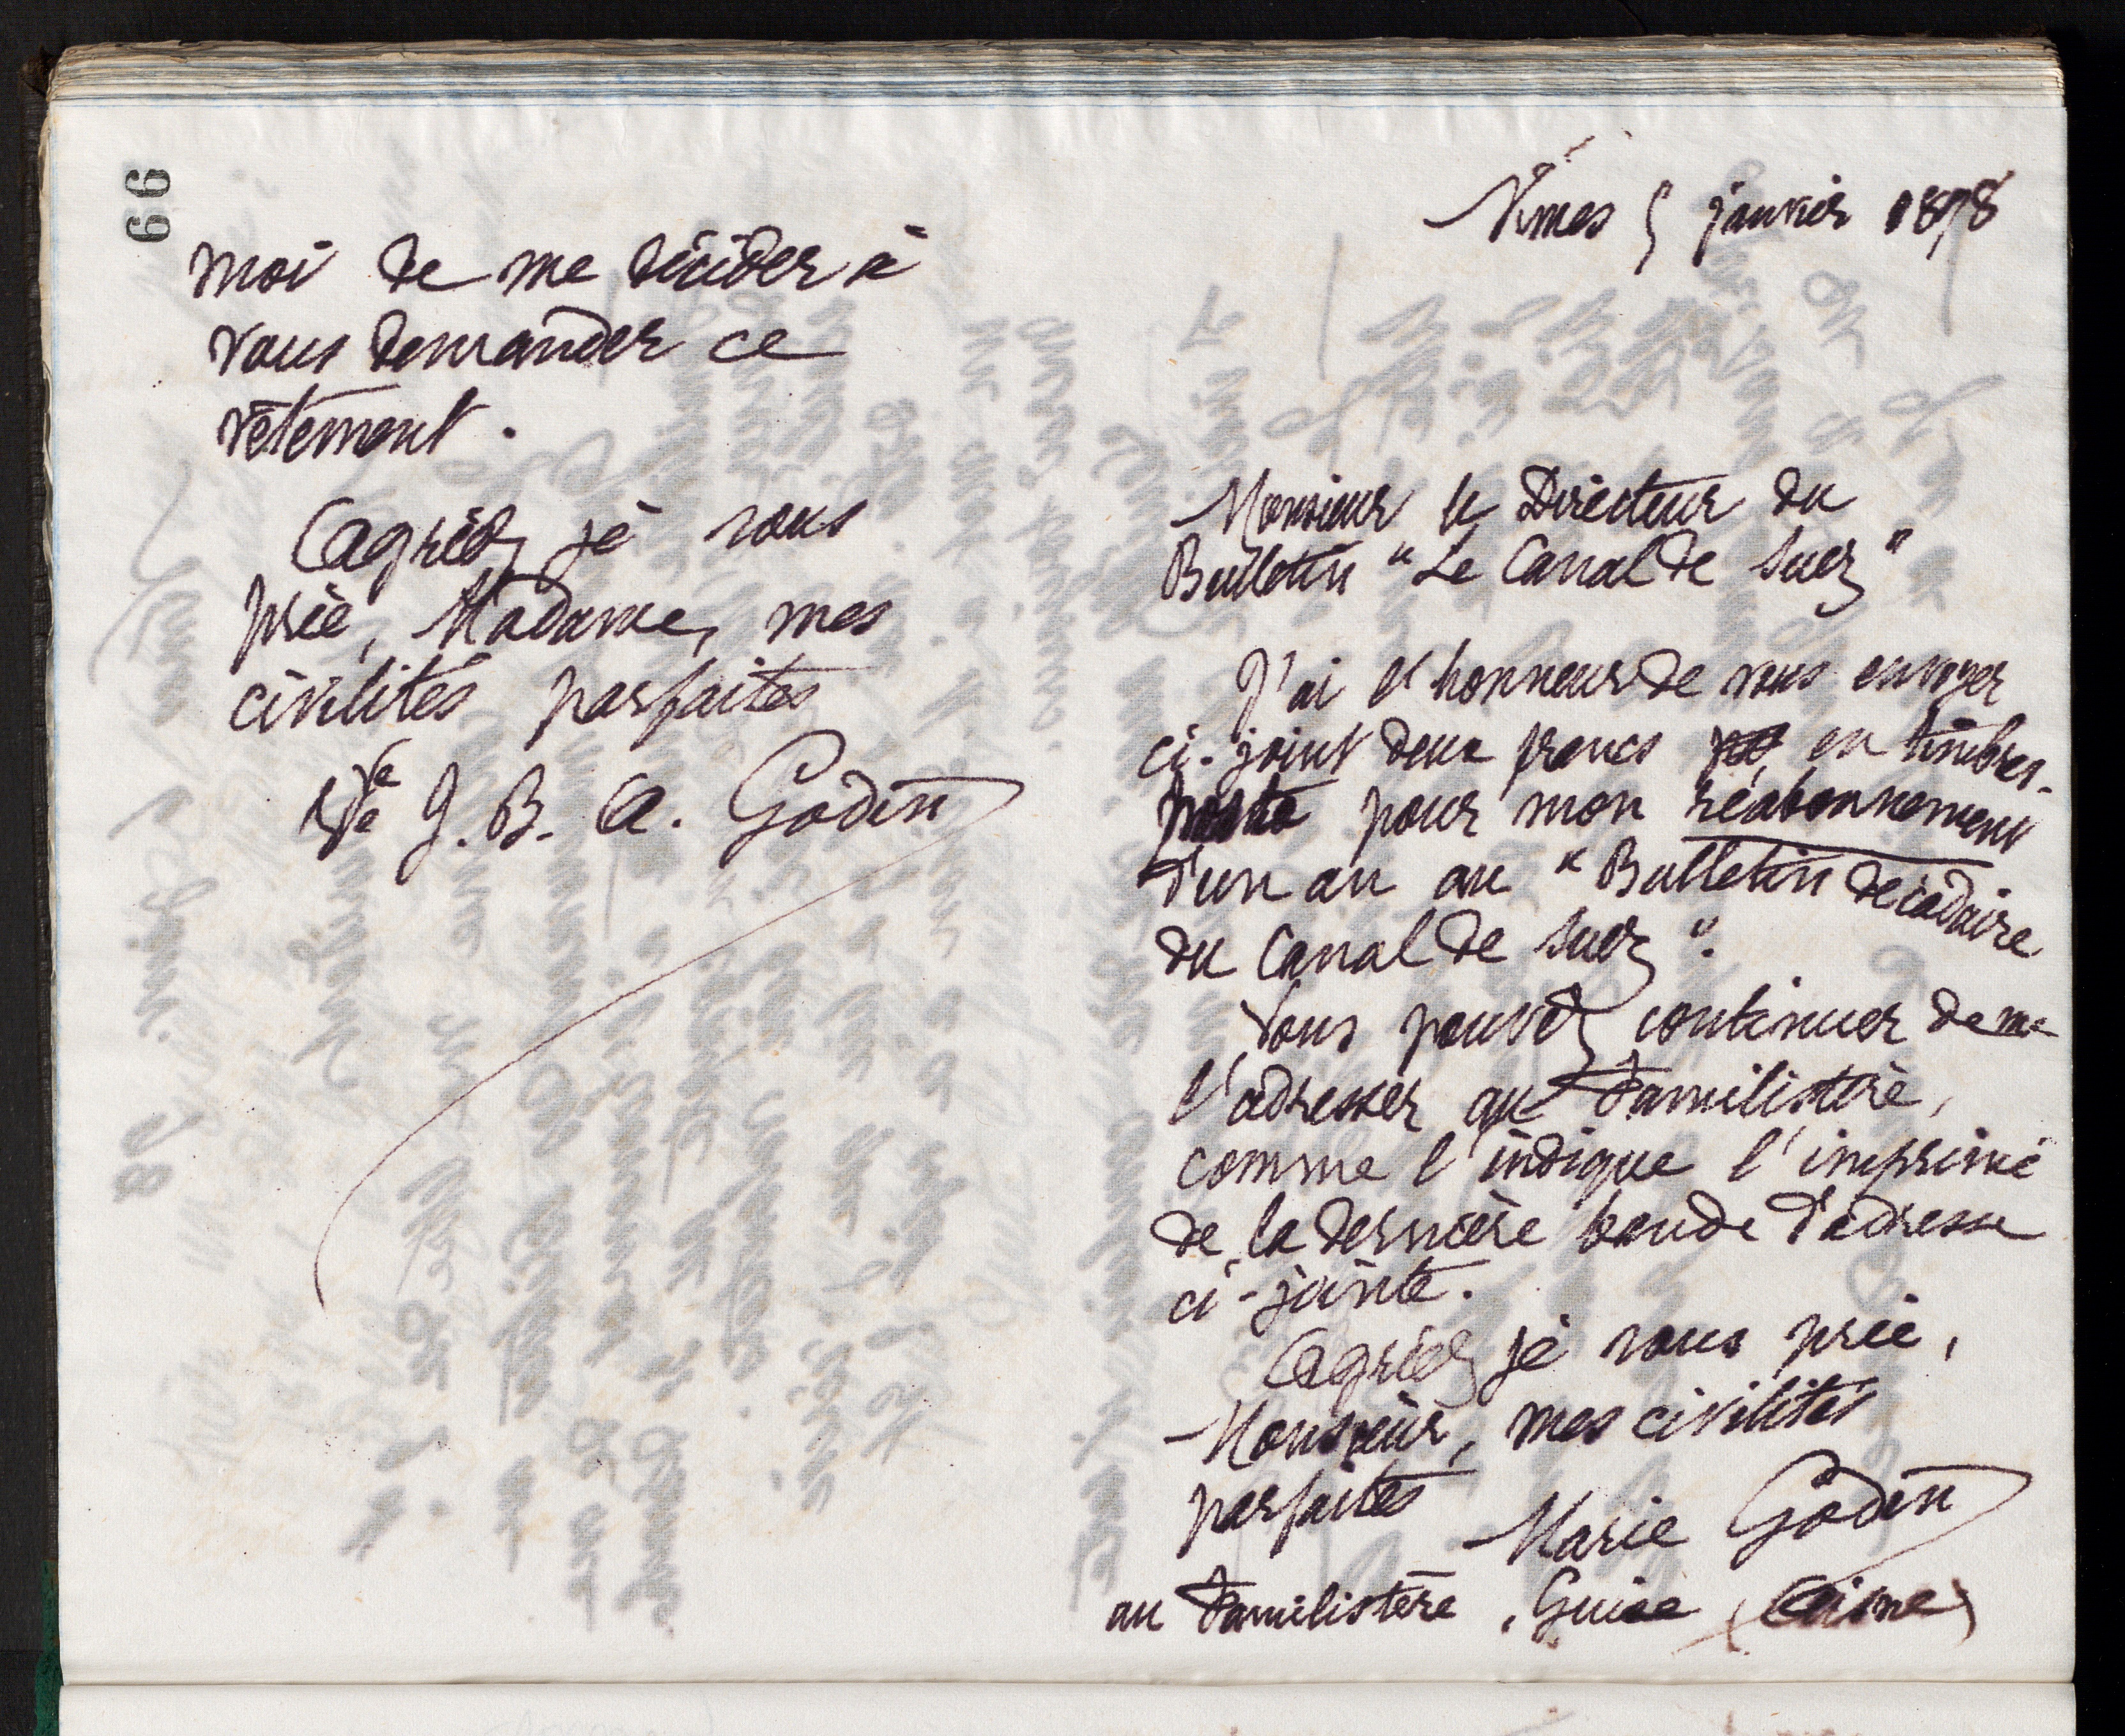 66
moi de me décider à
vous demander ce
vêtement.
Agréez je vous
prie, Madame, mes
civilités parfaites
Vve J. B. A. Godin
Nîmes 5 janvier 1898
Monsieur le Directeur du
Bulletin "Le Canal de Suez"
J'ai l'honneur de vous envoyer
ci-joint deux francs en timbres-
poste pour mon réabonnement
d'un an au "Bulletin décadaire
du Canal de Suez".
Vous pouvez continuer de me
l'adresser au Familistère,
comme l'indique l'imprimé
de la dernière bande d'adresse
ci-jointe.
Agréez je vous prie,
Monsieur, mes civilités
parfaites
Marie Godin
au Familistère, Guise (Aisne)